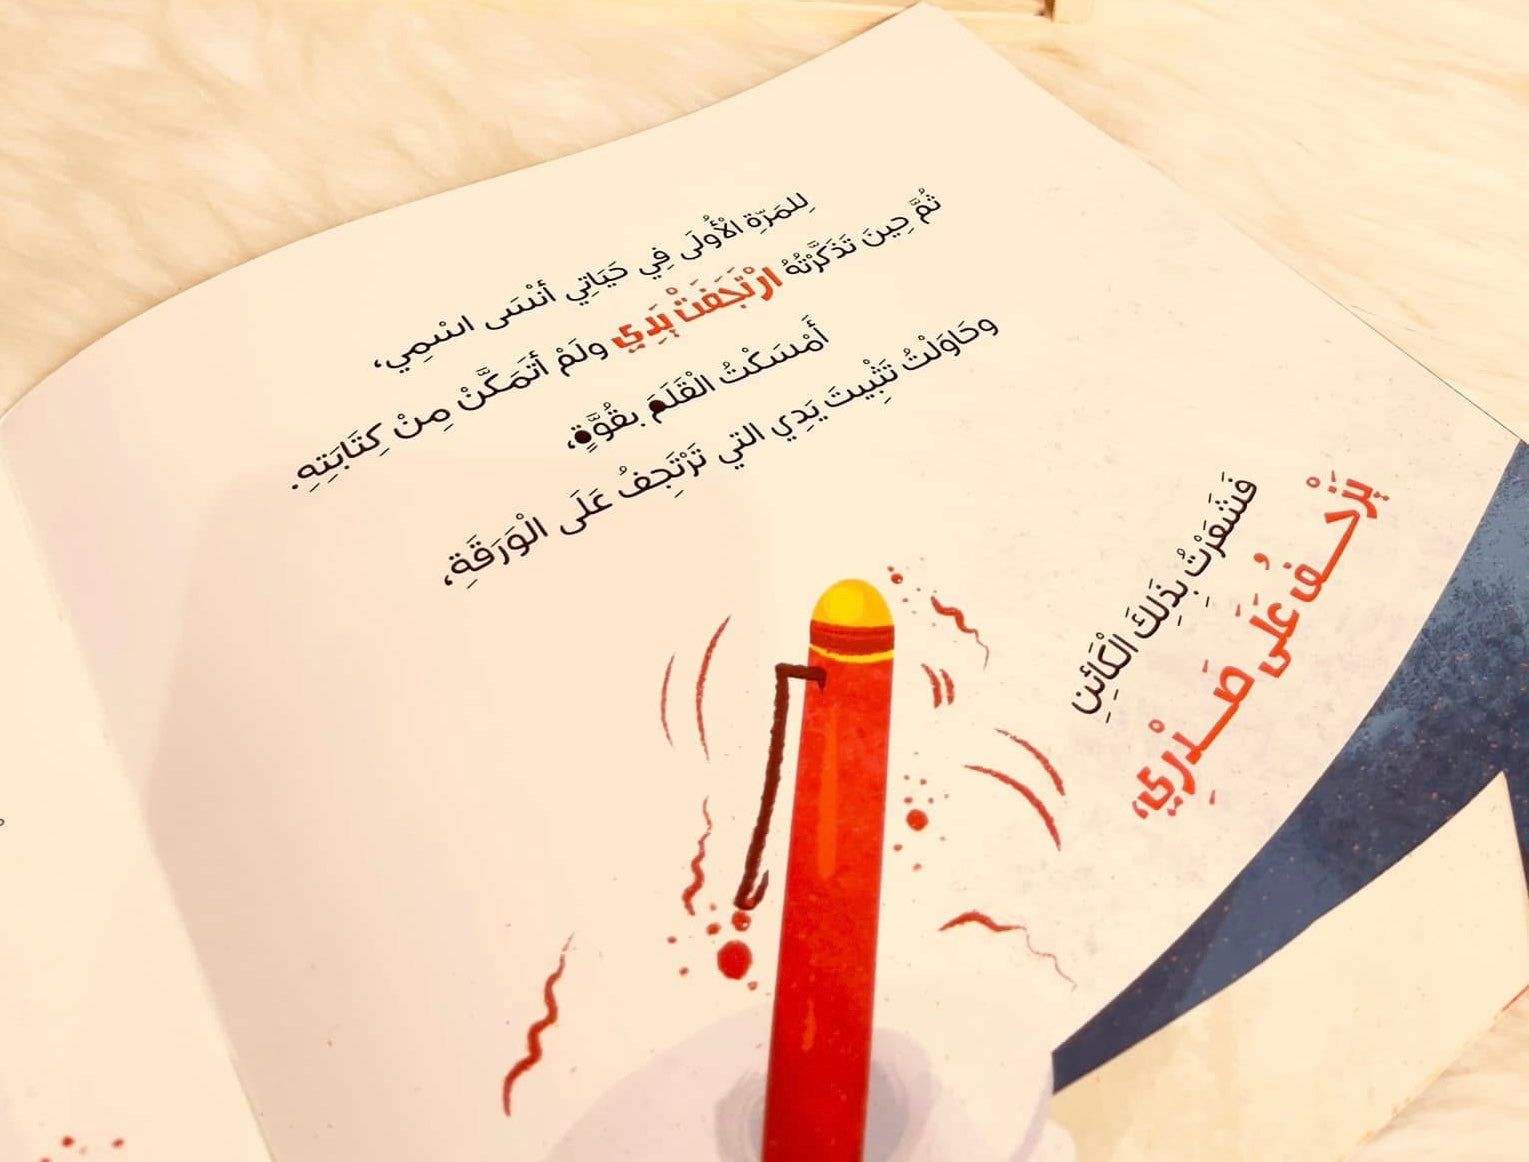 لِلمَرّةِ الْأُولَى فِي حَيَاتِي أَنْسَى اسْمِي،
ثُمَّ حِينَ تَذَكَّرْتُهُ ارْتَجَفَتْ يَدِي ولَمْ أَتَمَكَّنْ مِنْ كِتَابَتِهِ.
أَمْسَكْتُ الْقَلَمَ بقُوَّةٍ،
وحَاوَلْتُ تَثْبِيتَ يَدِي التي تَرْتَجِفُ عَلَى الْوَرَقَةِ،
فَشَعَرْتُ بِذَلِكَ الْكَائِنِ
يَزْحـفُ عَلَى صَـدْرِي،